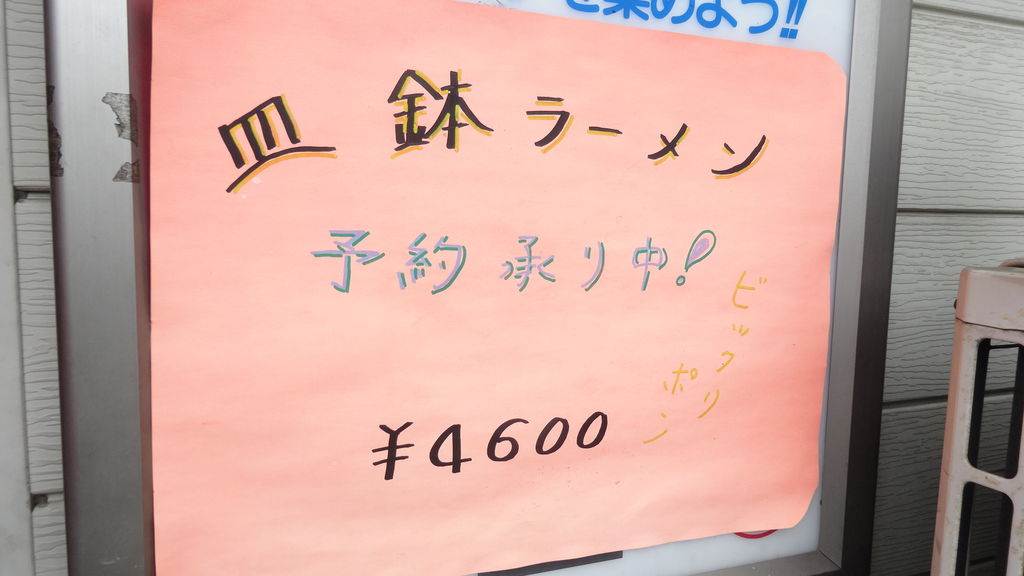 を集めよう!!
皿鉢ラーメン
予約承り中!
ビックリ
ポン
¥4600